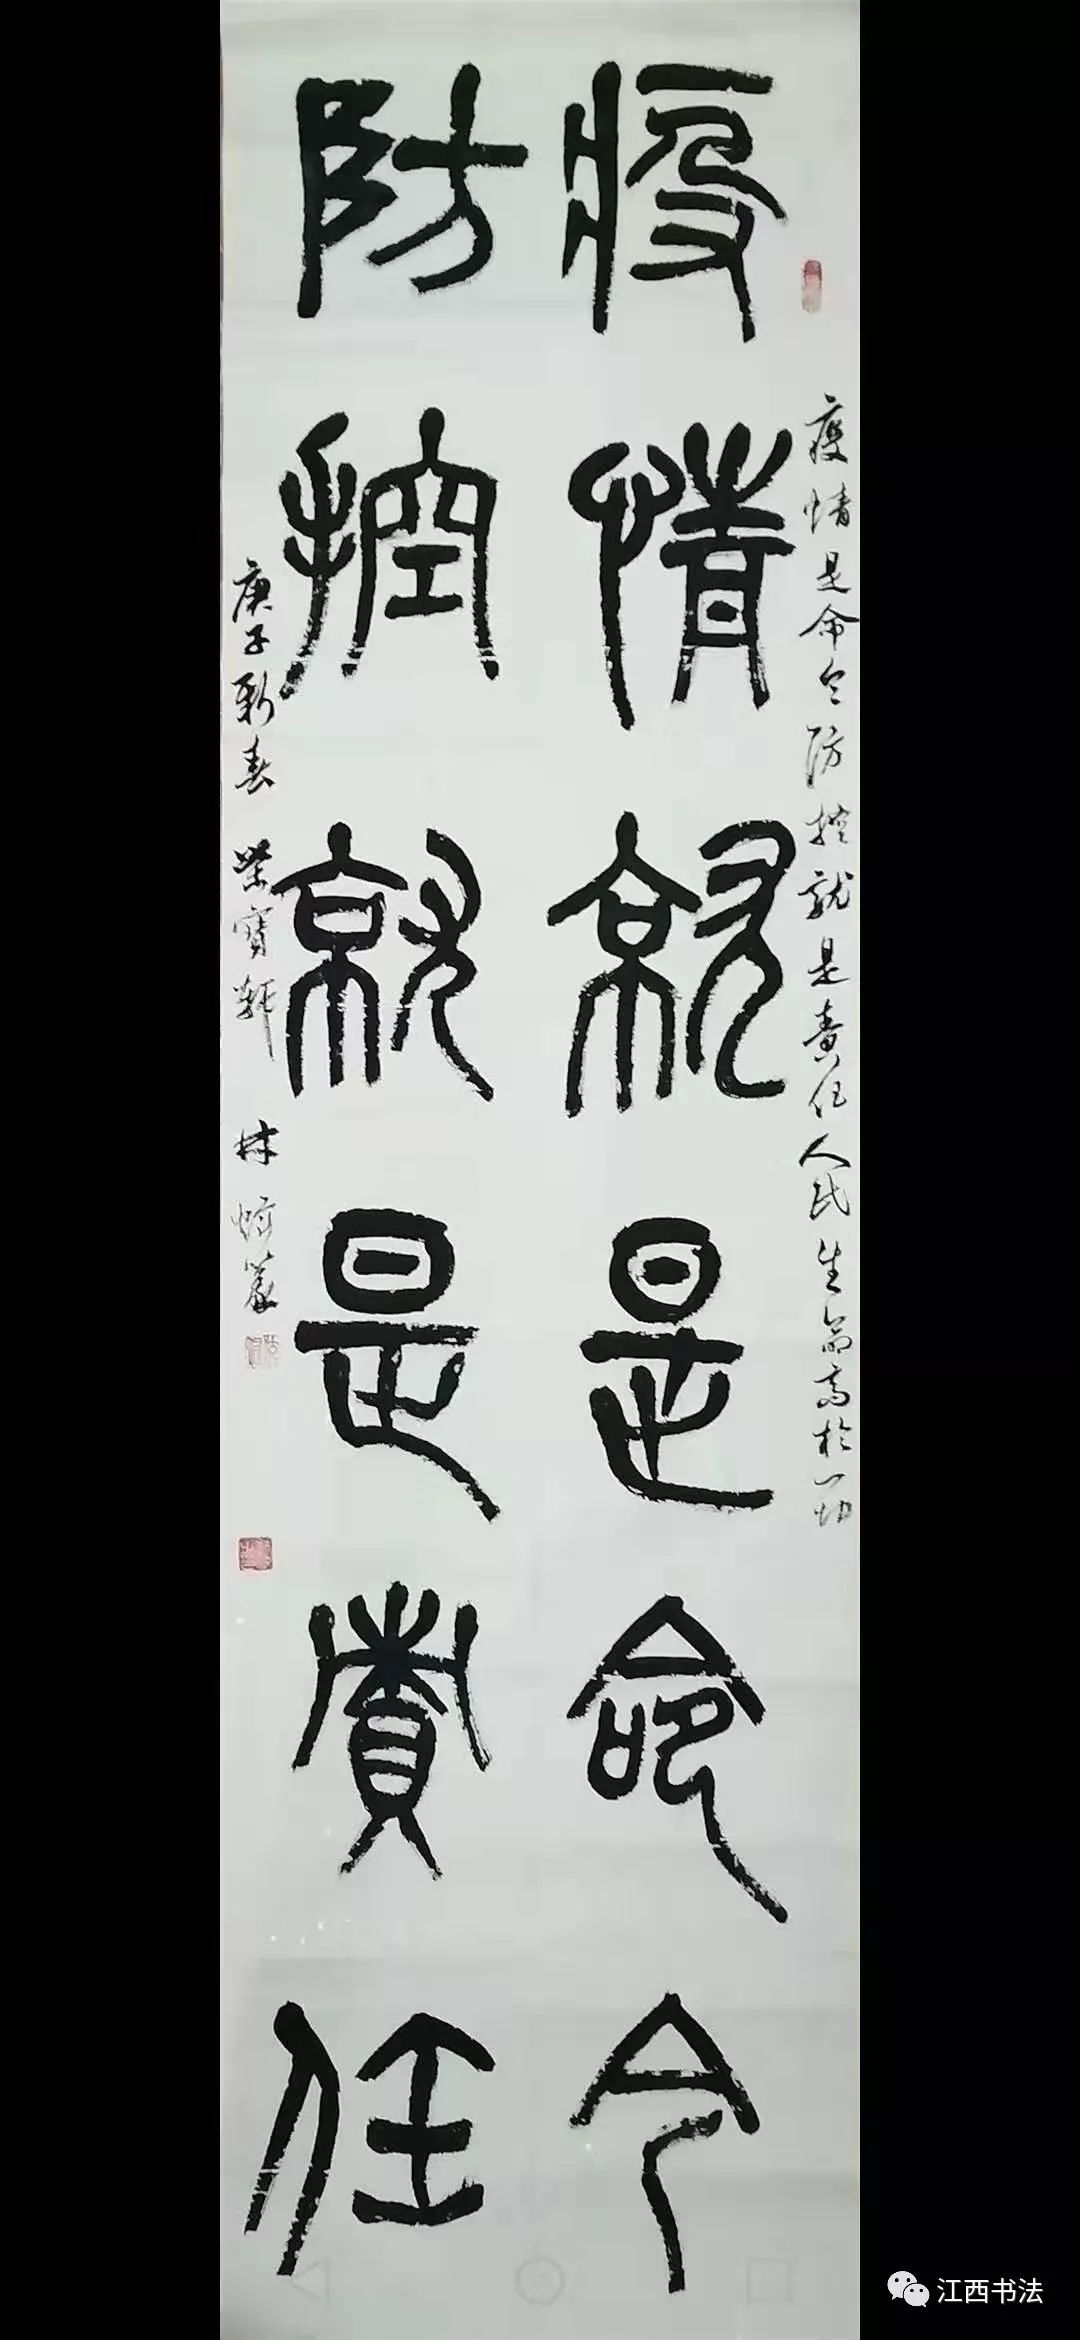 疫情就是命令
防控就是責任
疫情是命令防控就是責任人民生命高於一切
庚子新春 榮寶軒 林 篆
江西书法